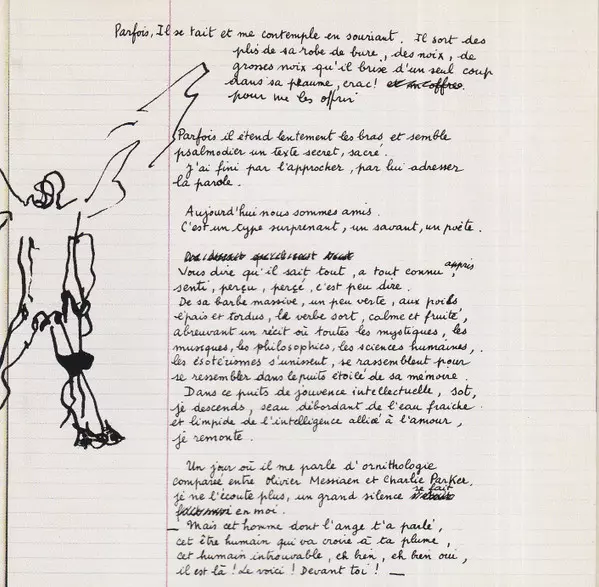 Parfois, Il se tait et me contemple en souriant. Il sort des
plis de sa robe de bure, des noix, de
grosses noix qu'il brise d'un seul coup
dans sa paume, crac! et m'en offre
pour me les offrir
Parfois il étend lentement les bras et semble
psalmodier un texte secret, sacré.
J'ai fini par l'approcher, par lui adresser
la parole.
Aujourd'hui nous sommes amis.
C'est un type surprenant, un savant, un poète.
Vous dire qu'il sait tout, a tout connu, appris
senti, perçu, percé, c'est peu dire.
De sa barbe massive, un peu verte, aux poils
épais et tordus, le verbe sort, calme et fruité,
abreuvant un récit où toutes les mystiques, les
musiques, les philosophies, les sciences humaines,
les ésotérismes s'unissent, se rassemblent pour
se ressembler dans le puits étoilé de sa mémoire.
Dans ce puits de jouvence intellectuelle, sot,
je descends, seau débordant de l'eau fraiche
et limpide de l'intelligence alliée à l'amour,
je remonte.
Un jour où il me parle d'ornithologie
comparée entre Olivier Messiaen et Charlie Parker,
je ne l'écoute plus, un grand silence se fait
en moi.
_ Mais cet homme dont l'ange t'a parlé,
cet être humain qui va croire à ta plume,
cet humain introuvable, eh bien, eh bien oui,
il est là! Le voici! Devant toi! _